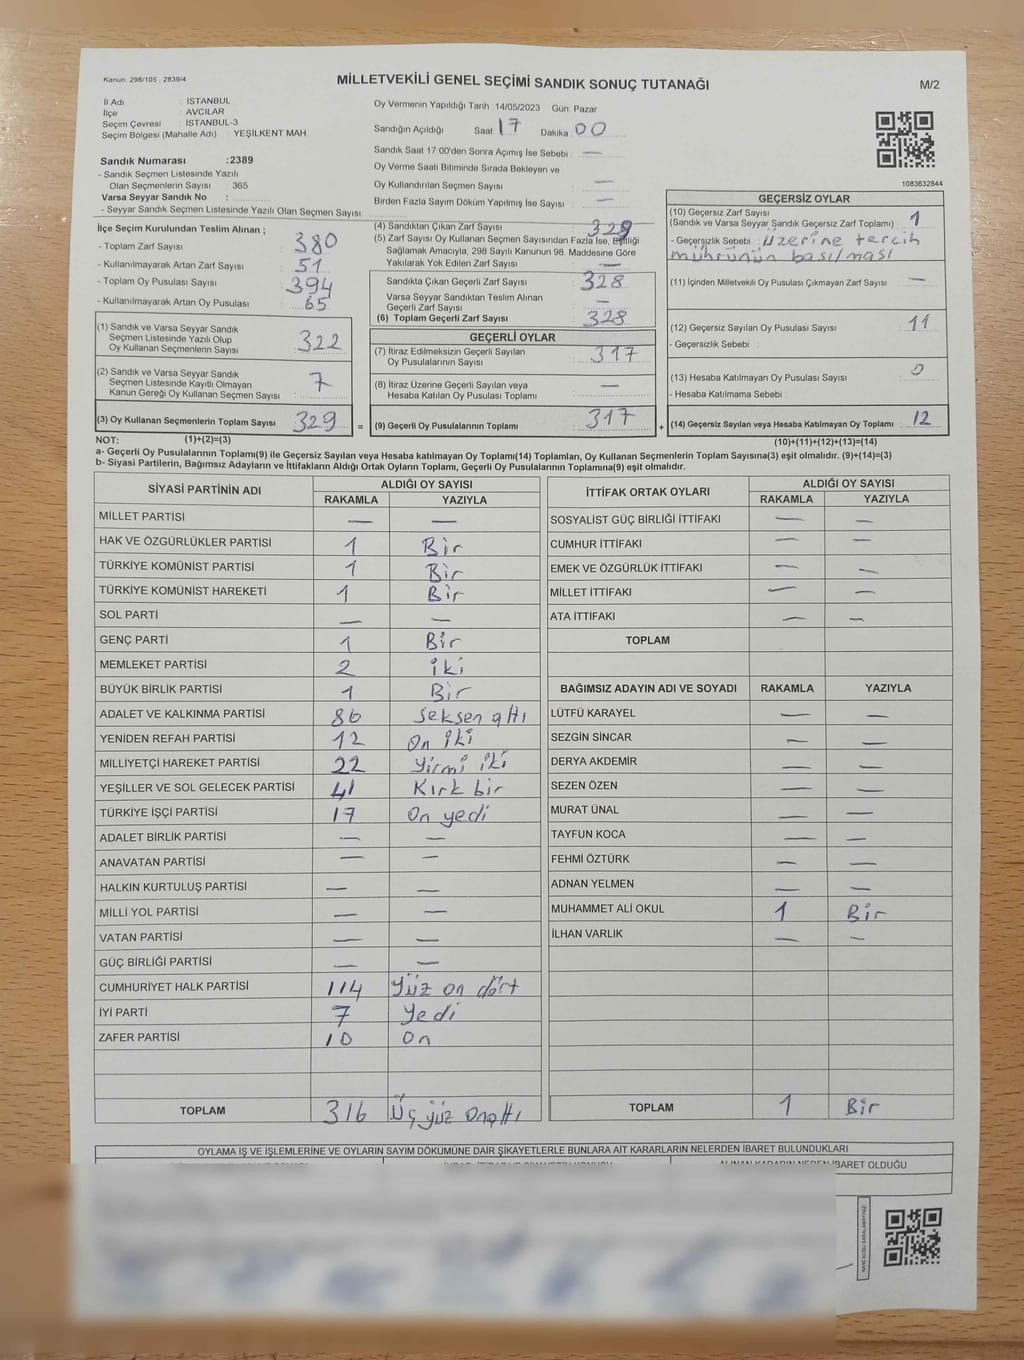 Kanun: 298/105 - 2839/4
MİLLETVEKİLİ GENEL SEÇİMİ SANDIK SONUÇ TUTANAĞI
M/2
İl Adı : İSTANBUL
İlçe : AVCILAR
Seçim Çevresi : İSTANBUL-3
Seçim Bölgesi (Mahalle Adı) : YEŞİLKENT MAH
Oy Vermenin Yapıldığı Tarih :14/05/2023 Gün: Pazar
Sandığın Açıldığı Saat 17 Dakika 00
Sandık Saat 17:00'den Sonra Açımış İse Sebebi : —
Oy Verme Saati Bitiminde Sırada Bekleyen ve
Oy Kullandırılan Seçmen Sayısı : —
Birden Fazla Sayım Döküm Yapılmış İse Sayısı : —
Sandık Numarası :2389
- Sandık Seçmen Listesinde Yazılı
Olan Seçmenlerin Sayısı : 365
Varsa Seyyar Sandık No :
- Seyyar Sandık Seçmen Listesinde Yazılı Olan Seçmen Sayısı:
1083632844
İlçe Seçim Kurulundan Teslim Alınan ;
- Toplam Zarf Sayısı : 380
- Kullanılmayarak Artan Zarf Sayısı : 51
- Toplam Oy Pusulası Sayısı : 394
- Kullanılmayarak Artan Oy Pusulası : 65
(1) Sandık ve Varsa Seyyar Sandık
Seçmen Listesinde Yazılı Olup
Oy Kullanan Seçmenlerin Sayısı : 322
(2) Sandık ve Varsa Seyyar Sandık
Seçmen Listesinde Kayıtlı Olmayan
Kanun Gereği Oy Kullanan Seçmen Sayısı : 7
(3) Oy Kullanan Seçmenlerin Toplam Sayısı : 329 =
(4) Sandıktan Çıkan Zarf Sayısı : 329
(5) Zarf Sayısı Oy Kullanan Seçmen Sayısından Fazla İse, Eşitliği
Sağlamak Amacıyla, 298 Sayılı Kanunun 98. Maddesine Göre
Yakılarak Yok Edilen Zarf Sayısı : —
Sandıkta Çıkan Geçerli Zarf Sayısı : 328
Varsa Seyyar Sandıktan Teslim Alınan
Geçerli Zarf Sayısı : —
(6) Toplam Geçerli Zarf Sayısı : 328
GEÇERLİ OYLAR
(7) İtiraz Edilmeksizin Geçerli Sayılan
Oy Pusulalarının Sayısı : 317
(8) İtiraz Üzerine Geçerli Sayılan veya
Hesaba Katılan Oy Pusulası Toplamı : —
(9) Geçerli Oy Pusulalarının Toplamı : 317 +
GEÇERSİZ OYLAR
(10) Geçersiz Zarf Sayısı
(Sandık ve Varsa Seyyar Sandık Geçersiz Zarf Toplamı) : 1
- Geçersizlik Sebebi : üzerine tercih
mührünün basılması
(11) İçinden Milletvekili Oy Pusulası Çıkmayan Zarf Sayısı : —
(12) Geçersiz Sayılan Oy Pusulası Sayısı : 11
- Geçersizlik Sebebi :
(13) Hesaba Katılmayan Oy Pusulası Sayısı : 0
- Hesaba Katılmama Sebebi :
(14) Geçersiz Sayılan veya Hesaba Katılmayan Oy Toplamı : 12
NOT: (1)+(2)=(3)
(10)+(11)+(12)+(13)=(14)
a- Geçerli Oy Pusulalarının Toplamı(9) ile Geçersiz Sayılan veya Hesaba katılmayan Oy Toplamı(14) Toplamları, Oy Kullanan Seçmenlerin Toplam Sayısına(3) eşit olmalıdır. (9)+(14)=(3)
b- Siyasi Partilerin, Bağımsız Adayların ve İttifakların Aldığı Ortak Oyların Toplamı, Geçerli Oy Pusulalarının Toplamına(9) eşit olmalıdır.
SİYASİ PARTİNİN ADI
ALDIĞI OY SAYISI
RAKAMLA YAZIYLA
MİLLET PARTİSİ — —
HAK VE ÖZGÜRLÜKLER PARTİSİ 1 Bir
TÜRKİYE KOMÜNİST PARTİSİ 1 Bir
TÜRKİYE KOMÜNİST HAREKETİ 1 Bir
SOL PARTİ — —
GENÇ PARTİ 1 Bir
MEMLEKET PARTİSİ 2 iki
BÜYÜK BİRLİK PARTİSİ 1 Bir
ADALET VE KALKINMA PARTİSİ 86 seksen altı
YENİDEN REFAH PARTİSİ 12 On iki
MİLLİYETÇİ HAREKET PARTİSİ 22 Yirmi iki
YEŞİLLER VE SOL GELECEK PARTİSİ 41 Kırk bir
TÜRKİYE İŞÇİ PARTİSİ 17 On yedi
ADALET BİRLİK PARTİSİ — —
ANAVATAN PARTİSİ — —
HALKIN KURTULUŞ PARTİSİ — —
MİLLİ YOL PARTİSİ — —
VATAN PARTİSİ — —
GÜÇ BİRLİĞİ PARTİSİ — —
CUMHURİYET HALK PARTİSİ 114 Yüz on dört
İYİ PARTİ 7 Yedi
ZAFER PARTİSİ 10 On
TOPLAM 316 Üç yüz onaltı
İTTİFAK ORTAK OYLARI
ALDIĞI OY SAYISI
RAKAMLA YAZIYLA
SOSYALİST GÜÇ BİRLİĞİ İTTİFAKI — —
CUMHUR İTTİFAKI — —
EMEK VE ÖZGÜRLÜK İTTİFAKI — —
MİLLET İTTİFAKI — —
ATA İTTİFAKI — —
TOPLAM
BAĞIMSIZ ADAYIN ADI VE SOYADI RAKAMLA YAZIYLA
LÜTFÜ KARAYEL — —
SEZGİN SİNCAR — —
DERYA AKDEMİR — —
SEZEN ÖZEN — —
MURAT ÜNAL — —
TAYFUN KOCA — —
FEHMİ ÖZTÜRK — —
ADNAN YELMEN — —
MUHAMMET ALİ OKUL 1 Bir
İLHAN VARLIK — —
TOPLAM 1 Bir
OYLAMA İŞ VE İŞLEMLERİNE VE OYLARIN SAYIM DÖKÜMÜNE DAİR ŞİKAYETLERLE BUNLARA AİT KARARLARIN NELERDEN İBARET BULUNDUKLARI
ALINAN KARARIN NEDEN İBARET OLDUĞU